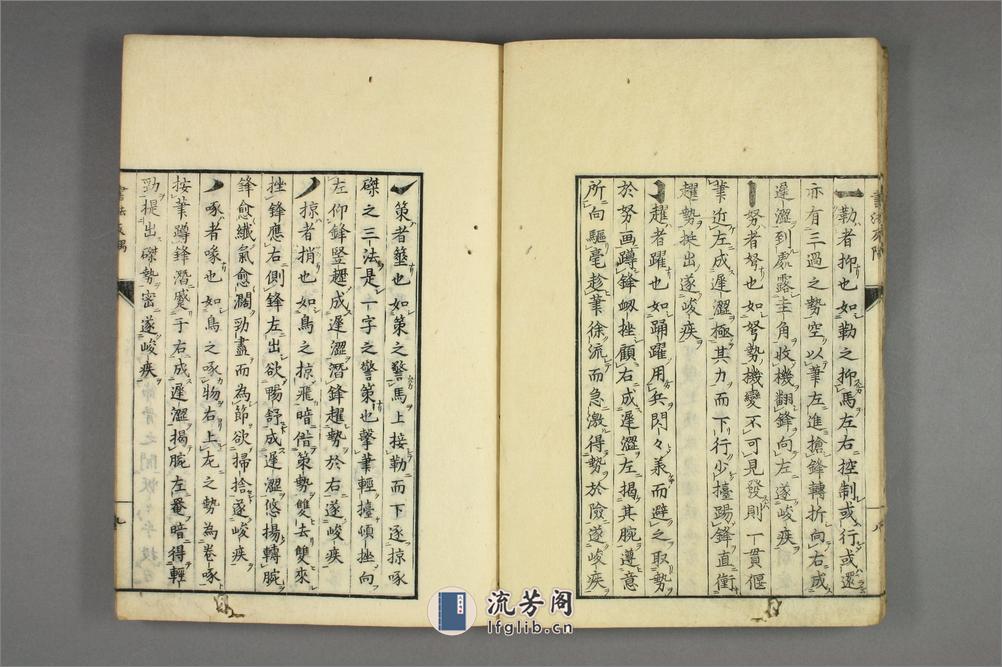 勒者抑也如勒之抑馬左右控制或行或還
亦有三過之勢空以筆左進搶鋒轉折向右成
遲澀到處露圭角收機翻鋒向左遂峻疾
努者弩也如弩勢機變不可見發則一貫偃
筆近左成遲澀極其力而下行少擡踢鋒直衝
趯勢挨出遂峻疾
趯者躍也如踊躍用兵閃々義而避之取勢
於努画蹲鋒衂挫顧右成遲澀左揭其腕遵意
所向驅毫趁筆徐流而急激得勢於險遂峻疾
策者箠也如策之警馬上接勒而下逐掠啄
磔之三法是一字之警策也擊筆輕擡傾挫向
左仰鋒竪趯成遲澀潛鋒趯勢於右遂峻疾
掠者捎也如鳥之掠飛暗借策勢雙去雙來
挫鋒應右側鋒左出欲暢舒成遲澀悠揚轉腕
鋒愈纖氣愈濶勁盡而為節欲掃捨遂峻疾
啄者喙也如鳥之啄物右上左之勢為卷啄
按筆蹲鋒潛蹙于右成遲澀揭腕左罨暗得輕
勁提出磔勢密遂峻疾
流芳阁
lfglib.cn